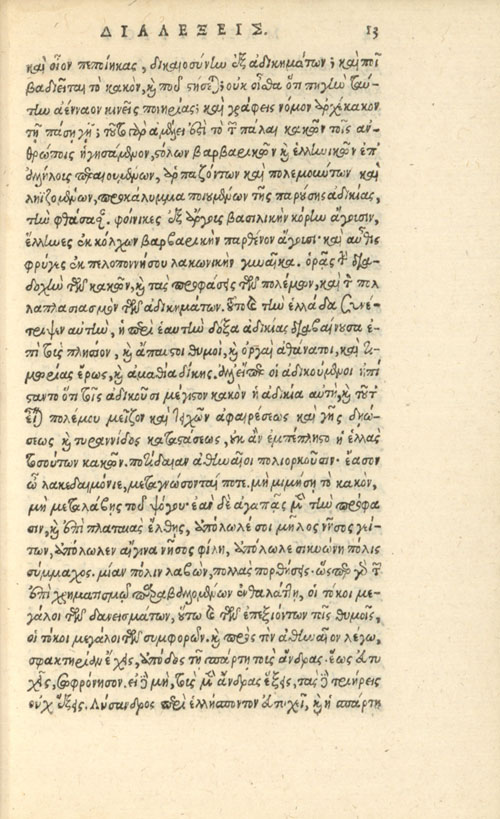 ΔΙΑΛΕΞΕΙΣ. 13
καὶ οἷον πεποίηκας, δικαιοσύνην ἐξ ἀδικημάτων; καὶ ποῖ
βαδιεῖται τὸ κακὸν, καὶ ποῦ στήσεται; οὐκ οἶσθα ὅτι πηγὴν ταύ-
την ἀένναον κινεῖς πονηρίας; καὶ γράφεις νόμον ἀρχέκακον
τῇ πάσῃ γῇ;
θρώποις ἡγησάμενον, στόλων βαρβαρικῶν καὶ ἑλληνικῶν ἐπ'
ἀλλήλους περαιουμένων, ἁρπαζόντων καὶ πολεμούντων καὶ
ληϊζομένων, προκάλυμμα ποιουμένων τῆς παρούσης ἀδικίας,
τὴν φθάσασαν. φοίνικες ἐξ ἄργους βασιλικὴν κόρην ἄγουσιν,
ἕλληνες ἐκ κόλχων βαρβαρικὴν παρθένον ἄγουσι· καὶ αὖθις
φρύγες ἐκ πελοποννήσου λακωνικὴν γυναῖκα. ὁρᾷς τὴν δια-
δοχὴν τῶν κακῶν, καὶ τὰς προφάσεις τῶν πολέμων, καὶ τὸν πολ
λαπλασιασμὸν τῶν ἀδικημάτων. τοῦτο καὶ τὴν ἑλλάδα συνέ-
τριψεν αὐτὴν, ἡ περὶ ἑαυτὴν δόξα ἀδικίας διαβαίνουσα ἐ-
πὶ τοὺς πλησίον, καὶ ἄπαυστοι θυμοὶ, καὶ ὀργαὶ ἀθάνατοι, καὶ τι-
μωρίας ἔρως, καὶ ἀμαθία δίκης. ἀλλ' εἴπερ οἱ ἀδικούμενοι ἠπί
σταντο ὅτι τοῖς ἀδικοῦσι μέγιστον κακὸν ἡ ἀδικία αὐτὴ, καὶ τοῦτ'
ἐστὶ πολέμου μεῖζον καὶ τειχῶν ἀφαιρέσεως καὶ γῆς δῃώ-
σεως καὶ τυραννίδος καταστάσεως, οὐκ ἂν ἐμπέπληστο ἡ ἑλλὰς
τοσούτων κακῶν. ποτίδαιαν ἀθηναῖοι πολιορκοῦσιν· ἔασον
ὦ λακεδαιμόνιε, μεταγνώσονταί ποτε. μὴ μιμήσῃ τὸ κακὸν,
μὴ μεταλάβῃς τοῦ ψόγου· ἐὰν δὲ ἀγαπήσας τὴν πρόφα
σιν, καὶ ἐπὶ πλαταιὰς ἔλθῃς, ἀπόλωλέ σοι μῆλος νῆσος γεί-
των, ἀπόλωλεν αἴγινα νῆσος φίλη, ἀπόλωλε σικυώνη πόλις
σύμμαχος. μίαν πόλιν λαβὼν, πολλὰς πορθήσεις. ὥσπερ γὰρ τῶν
ἐπὶ χρηματισμῷ παραβαλλομένων ἐν θαλάττῃ, οἱ τόκοι με-
γάλοι τῶν δανεισμάτων, οὕτω καὶ τῶν ἐπεξιόντων τοῖς θυμοῖς,
οἱ τόκοι μεγάλοι τῶν συμφορῶν. καὶ πρὸς τὸν ἀθηναῖον λέγω,
σφακτηρίαν ἔχεις, ἀπόδος τῇ σπάρτῃ τοὺς ἄνδρας. ἕως εὐτυ
χεῖς, σωφρόνησον. εἰ δὲ μὴ, τοὺς μὲν ἄνδρας ἕξεις, τὰς δὲ τριήρεις
οὐχ ἕξεις. Λύσανδρος περὶ ἑλλήσποντον εὐτυχεῖ, καὶ ἡ σπάρτη